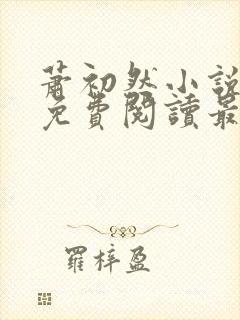 蕭初然小說
免費閱讀最
羅梓盈